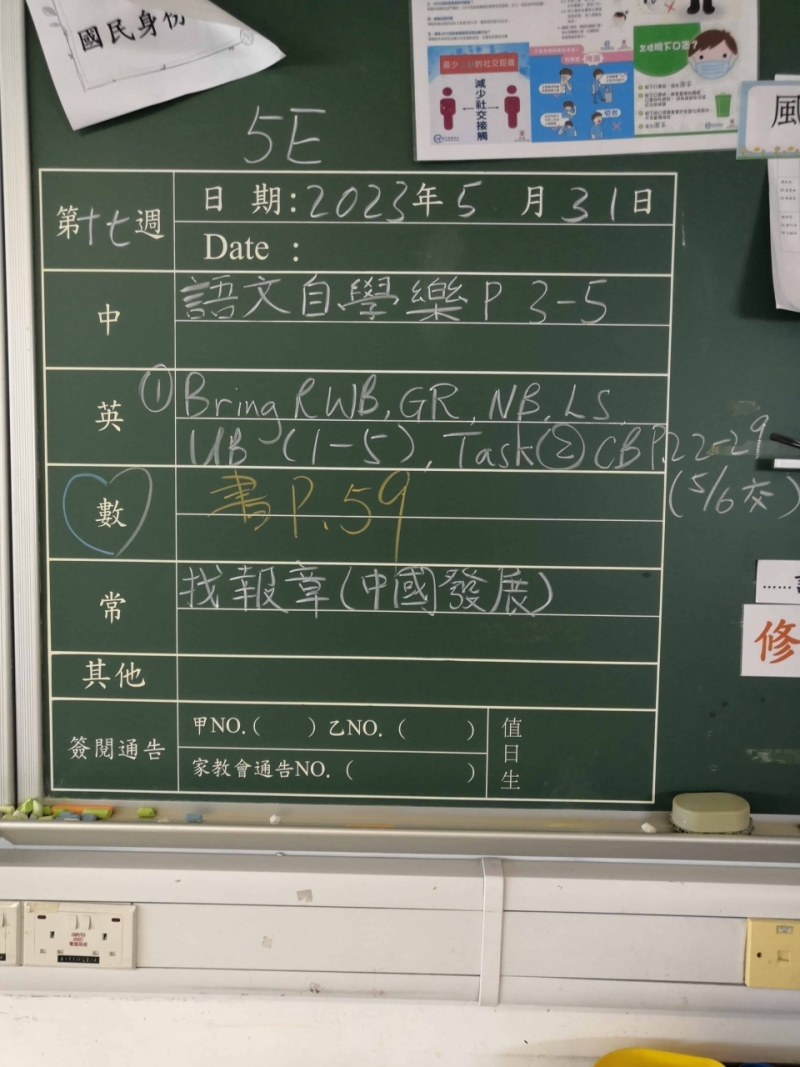 國民身份
最少 的社交距離
減少社交接觸
怎樣除下口罩?
風
5E
第十七週
日 期:2023年5 月31日
Date :
中
語文自學樂P 3-5
英
①Bring RWB, GR, NB, LS,
UB (1-5), Task ② CBP.22-29
(5/6交)
數
書P.59
常
找報章(中國發展)
其他
修
簽閱通告
甲NO.( )乙NO.( )
家教會通告NO.( )
值日生